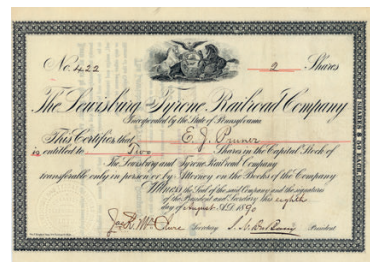 No. 422 2 Shares
The Lewisburg and Tyrone Railroad Company
Incorporated by the State of Pennsylvania
This Certifies that E. J. Pruner
is entitled to Two Shares in the Capital Stock of
The Lewisburg and Tyrone Railroad Company
transferable only in person or by Attorney on the Books of the Company
Witness the Seal of the said Company and the signatures
of the President and Secretary this eighth
day of August A.D. 189
Jos. R. Mc Secretary President